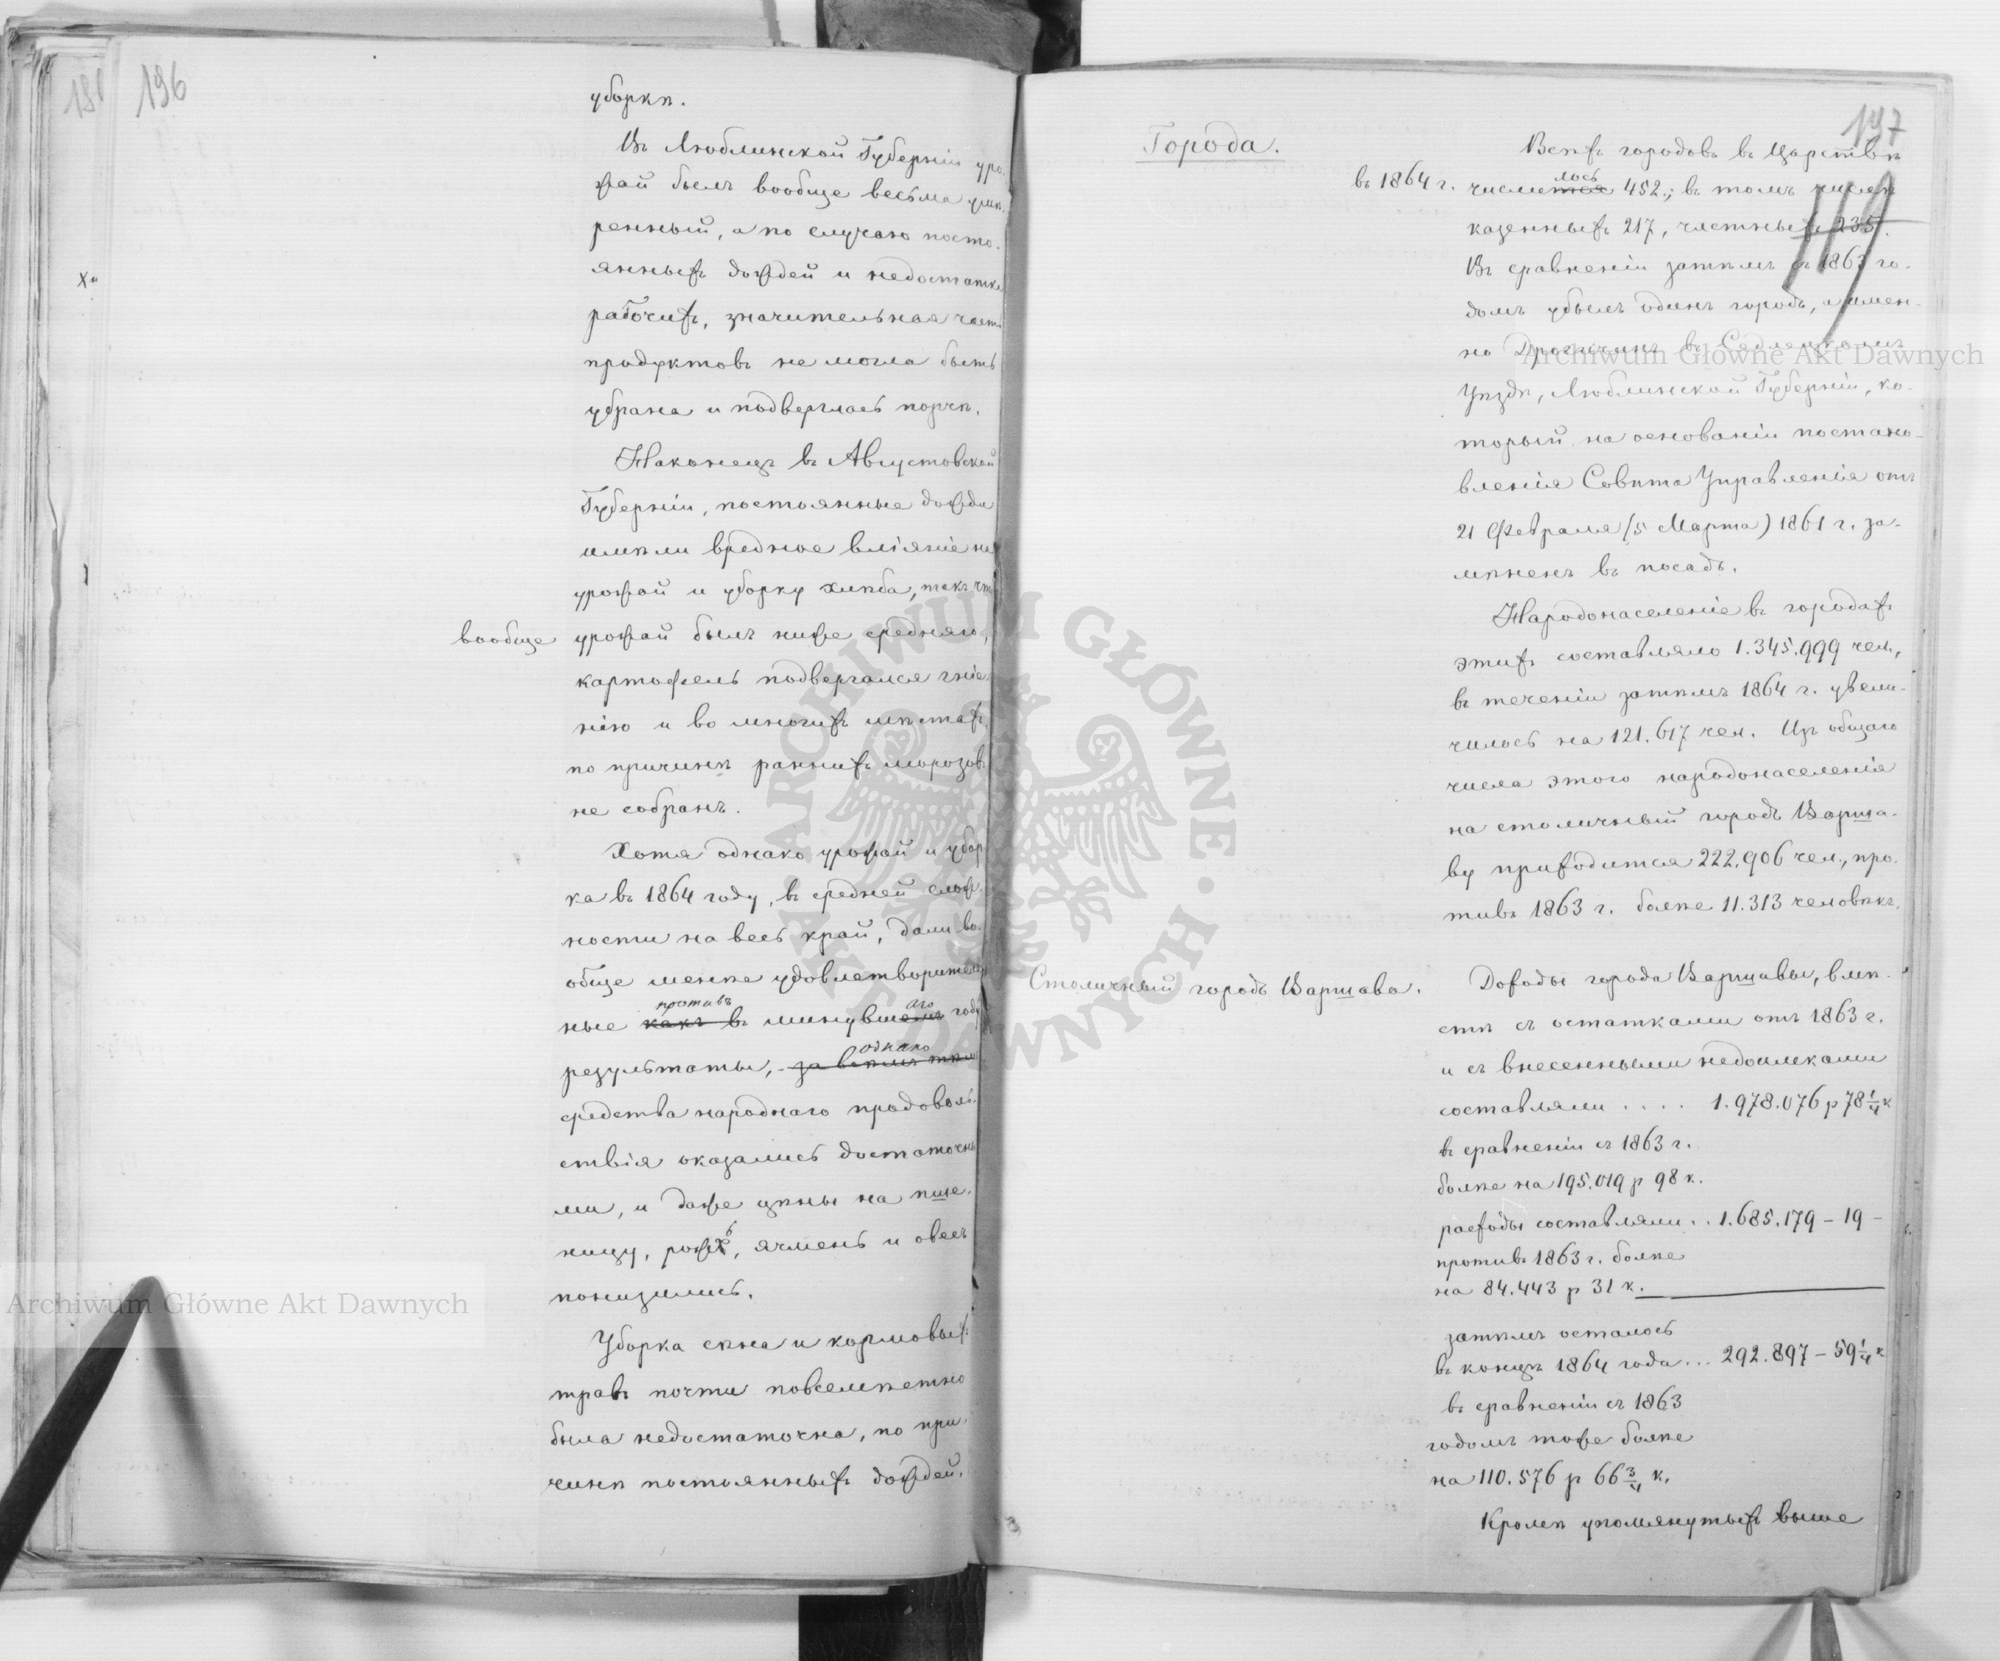 181
196
уборки.
Въ Люблинской Губерніи уро-
жай былъ вообще весьма умѣ-
ренный, а по случаю посто-
янныхъ дождей и недостатка
рабочихъ, значительная часть
продуктовъ не могла быть
убрана и подверглась порчѣ.
Наконецъ въ Августовской
Губерніи, постоянные дожди
имѣли вредное вліяніе на
урожай и уборку хлѣба, такъ что
вообще урожай былъ ниже средняго,
картофель подвергался гніе-
нію и во многихъ мѣстахъ,
по причинѣ раннихъ морозовъ
не собранъ.
Хотя однако урожай и убор-
ка въ 1864 году, въ средней слож-
ности на весь край, дали во-
обще менѣе удовлетворитель-
противъ аго
ные какъ въ минувшемъ году
однако
результаты, за всѣмъ тѣмъ
средства народнаго продоволь-
ствія оказались достаточны-
ми, и даже цѣны на пше-
ницу, рожь, ячмень и овесъ
понизились.
Уборка сѣна и кормовыхъ
травъ почти повсемѣстно
была недостаточна, по при-
чинѣ постоянныхъ дождей.
197
119
Города.
Всѣхъ городовъ въ Царствѣ
лось
въ 1864 г. числится 452; въ томъ числѣ
казенныхъ 217, частныхъ 235.
Въ сравненіи затѣмъ съ 1863 го-
домъ убылъ одинъ городъ, а имен-
но Дрогичинъ въ Седлецкомъ
Уѣздѣ, Люблинской Губерніи, ко-
торый на основаніи постано-
вленія Совѣта Управленія отъ
21 Февраля (5 Марта) 1861 г. за-
мѣненъ въ посадъ.
Народонаселеніе въ городахъ
этихъ составляло 1.345.999 чел.,
въ теченіи затѣмъ 1864 г. увели-
чилось на 121.617 чел. Изъ общаго
числа этого народонаселенія
на столичный городъ Варша-
ву приходится 222.906 чел., про-
тивъ 1863 г. болѣе 11.313 человѣкъ.
Столичный городъ Варшава.
Доходы города Варшавы, вмѣ-
стѣ съ остатками отъ 1863 г.
и съ внесенными недоимками
составляли .... 1.978.076 р 78 1/4 к
въ сравненіи съ 1863 г.
болѣе на 195.019 р 98 к.
расходы составляли .. 1.685.179 - 19 -
противъ 1863 г. болѣе
на 84.443 р 31 к.
затѣмъ осталось
въ концѣ 1864 года ... 292.897 - 59 1/4 к
въ сравненіи съ 1863
годомъ тоже болѣе
на 110.576 р 66 3/4 к.
Кромѣ упомянутыхъ выше
Archiwum Główne Akt Dawnych
Archiwum Główne Akt Dawnych
ARCHIWUM GŁÓWNE AKT DAWNYCH